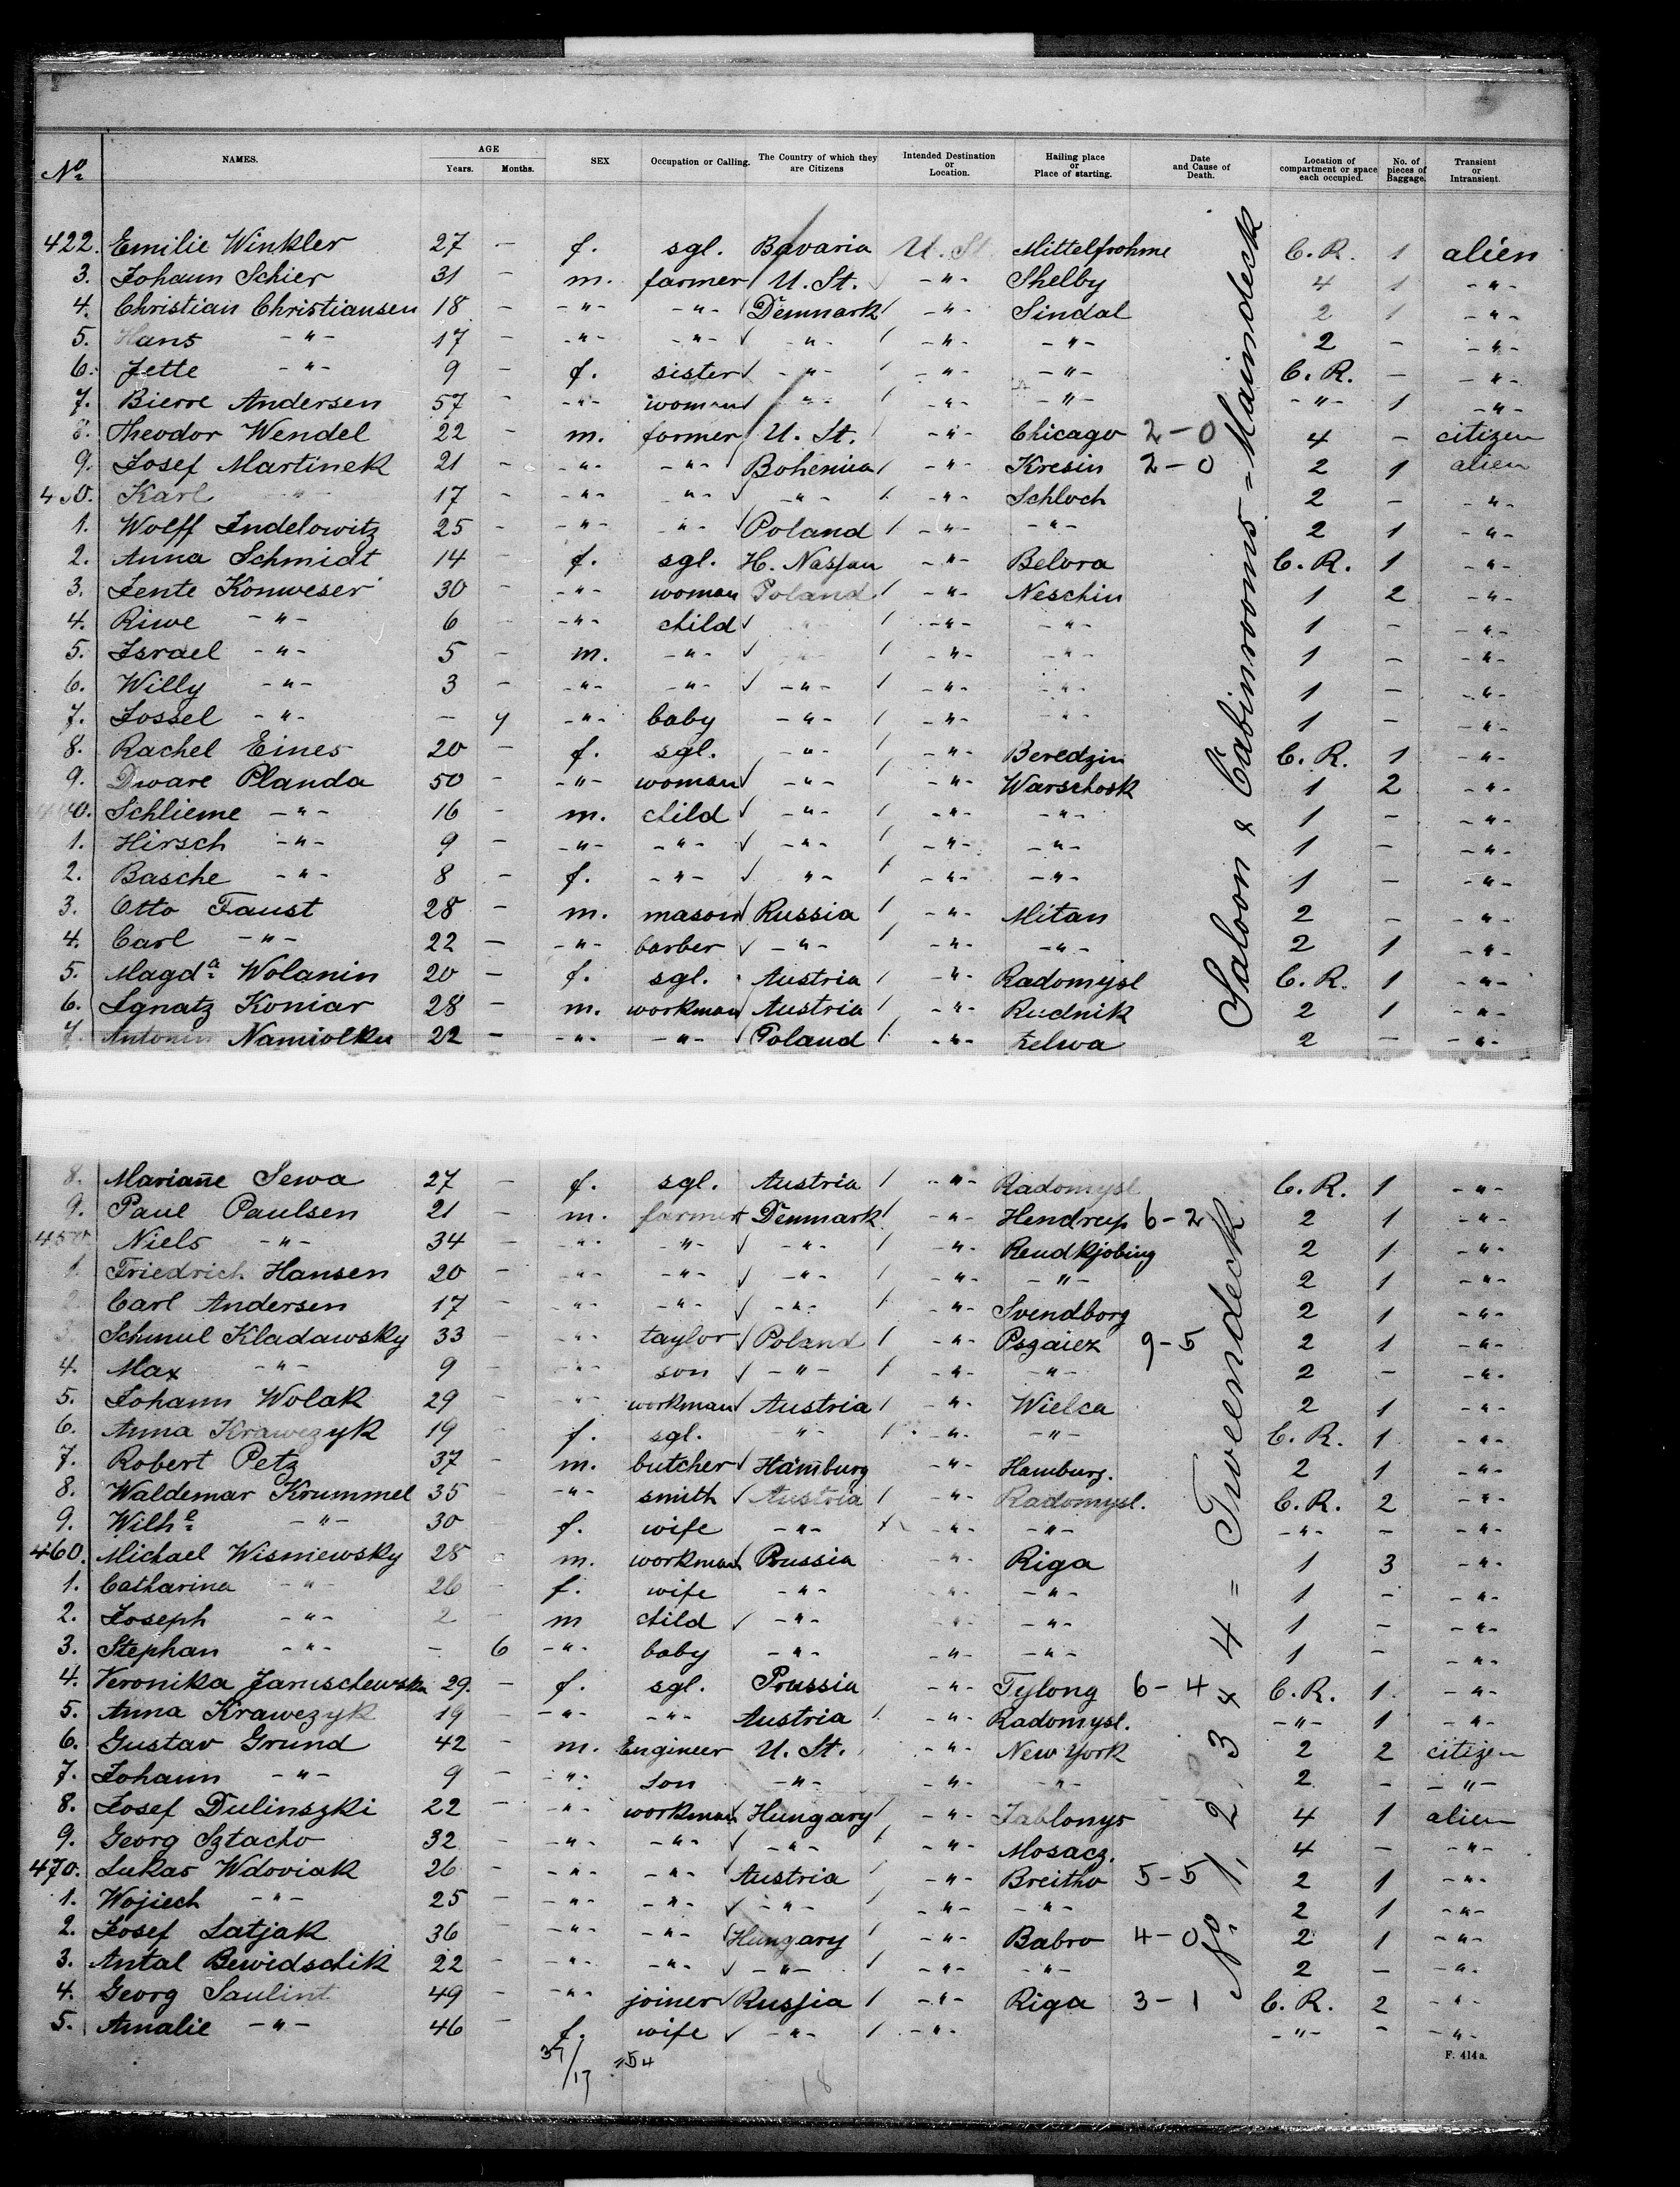 No. NAMES. AGE Years. Months. SEX Occupation or Calling. The Country of which they are Citizens Intended Destination or Location. Hailing place or Place of starting. Date and Cause of Death. Location of compartment or space each occupied. No. of pieces of Baggage. Transient or Intransient.
422. Emilie Winkler 27 - f. sgl. Bavaria U. St. Mittelfrohme C. R. 1 alien
3. Johann Schier 31 - m. farmer U. St. -"- Shelby 4 1 -"-
4. Christian Christiansen 18 - -"- -"- Denmark -"- Sindal 2 1 -"-
5. Hans -"- 17 - -"- -"- -"- -"- -"- 2 - -"-
6. Jette -"- 9 - f. sister -"- -"- -"- C. R. - -"-
7. Bierre Andersen 57 - -"- woman -"- -"- -"- -"- 1 -"-
8. Theodor Wendel 22 - m. farmer U. St. -"- Chicago 2-0 4 - citizen
9. Josef Martinek 21 - -"- -"- Bohemia -"- Kresin 2-0 2 1 alien
430. Karl -"- 17 - -"- -"- -"- -"- Schloch 2 - -"-
1. Wolff Indelowitz 25 - -"- -"- Poland -"- -"- 2 1 -"-
2. Anna Schmidt 14 - f. sgl. H. Nassau -"- Belvra C. R. 1 -"-
3. Jente Konweser 30 - -"- woman Poland -"- Neschin 1 2 -"-
4. Riwe -"- 6 - -"- child -"- -"- -"- 1 - -"-
5. Israel -"- 5 - m. -"- -"- -"- -"- 1 - -"-
6. Willy -"- 3 - -"- -"- -"- -"- -"- 1 - -"-
7. Jossel -"- - 9 -"- baby -"- -"- -"- 1 - -"-
8. Rachel Eines 20 - f. sgl. -"- -"- Beredzin C. R. 1 -"-
9. Dware Planda 50 - -"- woman -"- -"- Warschosk 1 2 -"-
440. Schlieme -"- 16 - m. child -"- -"- -"- 1 - -"-
1. Hirsch -"- 9 - -"- -"- -"- -"- -"- 1 - -"-
2. Basche -"- 8 - f. -"- -"- -"- -"- 1 - -"-
3. Otto Faust 28 - m. mason Russia -"- Mitan 2 - -"-
4. Carl -"- 22 - -"- barber -"- -"- -"- 2 1 -"-
5. Magda Wolanin 20 - f. sgl. Austria -"- Radomysl C. R. 1 -"-
6. Ignatz Koniar 28 - m. workman Austria -"- Rudnik 2 1 -"-
7. Antonin Namiolku 22 - -"- -"- Poland -"- Zelwa 2 - -"-
Saloon & Cabinrooms = Maindeck
8. Mariañe Sewa 27 - f. sgl. Austria -"- Radomysl C. R. 1 -"-
9. Paul Paulsen 21 - m. farmer Denmark -"- Hendrup 6-2 2 1 -"-
450 Niels -"- 34 - -"- -"- -"- -"- Rendkjobing 2 1 -"-
1. Friedrich Hansen 20 - -"- -"- -"- -"- -"- 2 1 -"-
2. Carl Andersen 17 - -"- -"- -"- -"- Svendborg 2 1 -"-
3. Schmul Kladawsky 33 - -"- taylor Poland -"- Psgaiez 9-5 2 1 -"-
4. Max -"- 9 - -"- son -"- -"- -"- 2 - -"-
5. Johann Wolak 29 - -"- workman Austria -"- Wielca 2 1 -"-
6. Anna Krawczyk 19 - f. sgl. -"- -"- -"- C. R. 1 -"-
7. Robert Petz 37 - m. butcher Hamburg -"- Hamburg. 2 1 -"-
8. Waldemar Krummel 35 - -"- smith Austria -"- Radomysl. C. R. 2 -"-
9. Wilhe -"- 30 - f. wife -"- -"- -"- -"- - -"-
460. Michael Wisniewsky 28 - m. workman Prussia -"- Riga 1 3 -"-
1. Catharina -"- 26 - f. wife -"- -"- -"- 1 - -"-
2. Joseph -"- 2 - m child -"- -"- -"- 1 - -"-
3. Stephan -"- - 6 -"- baby -"- -"- -"- 1 - -"-
4. Veronika Jaruschewska 29. - f. sgl. Prussia -"- Tylong 6-4 C. R. 1. -"-
5. Anna Krawczyk 19 - -"- -"- Austria -"- Radomysl. -"- 1 -"-
6. Gustav Grund 42 - m. Engineer U. St. -"- New York 2 2 citizen
7. Johann -"- 9 - -"- son -"- -"- -"- 2 - -"-
8. Josef Dulinszki 22 - -"- workman Hungary -"- Jablonys 4 1 alien
9. Georg Sztacho 32 - -"- -"- -"- -"- Mosacz. 4 - -"-
470. Lukas Wdoviak 26 - -"- -"- Austria -"- Breitho 5-5 2 1 -"-
1. Wojiech -"- 25 - -"- -"- -"- -"- -"- 2 1 -"-
2. Josef Latjak 36 - -"- -"- Hungary -"- Babro 4-0 2 1 -"-
3. Antal Bewidschik 22 - -"- -"- -"- -"- -"- 2 - -"-
4. Georg Saulint 49 - -"- joiner Russia -"- Riga 3-1 C. R. 2 -"-
5. Amalie -"- 46 - f. wife -"- -"- -"- - -"-
No. 1, 2, 3 & 4 = Tweendeck
37/17 =54
18
F. 414a.